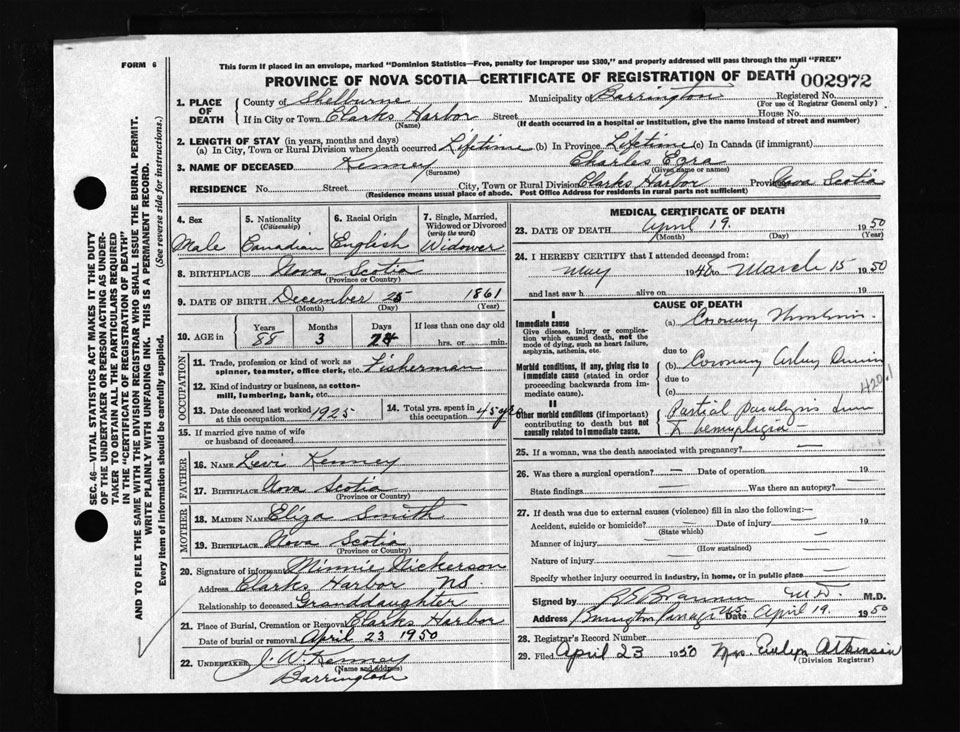 FORM 6
This form if placed in an envelope, marked "Dominion Statistics—Free, penalty for improper use $300," and properly addressed will pass through the mail "FREE"
PROVINCE OF NOVA SCOTIA—CERTIFICATE OF REGISTRATION OF DEATH 002972
SEC. 46—VITAL STATISTICS ACT MAKES IT THE DUTY
OF THE UNDERTAKER OR PERSON ACTING AS UNDER-
TAKER TO OBTAIN ALL THE PARTICULARS REQUIRED
IN THE "CERTIFICATE OF REGISTRATION OF DEATH"
AND TO FILE THE SAME WITH THE DIVISION REGISTRAR WHO SHALL ISSUE THE BURIAL PERMIT.
WRITE PLAINLY WITH UNFADING INK. THIS IS A PERMANENT RECORD.
Every item of information should be carefully supplied. (See reverse side for instructions.)
1. PLACE OF DEATH County of Shelburne Municipality of Barrington Registered No.
(For use of Registrar General only)
If in City or Town Clarks Harbor Street House No.
(Name) (If death occurred in a hospital or institution, give the name instead of street and number)
2. LENGTH OF STAY (in years, months and days)
(a) In City, Town or Rural Division where death occurred Lifetime (b) In Province Lifetime (c) In Canada (if immigrant)
3. NAME OF DECEASED Kenney Charles Ezra
(Surname) (Given name or names)
RESIDENCE No. Street City, Town or Rural Division Clarks Harbor Province Nova Scotia
(Residence means usual place of abode. Post Office Address for residents in rural parts not sufficient)
4. Sex Male
5. Nationality (Citizenship) Canadian
6. Racial Origin English
7. Single, Married, Widowed or Divorced (write the word) Widower
8. BIRTHPLACE Nova Scotia
(Province or Country)
9. DATE OF BIRTH December 25 1861
(Month) (Day) (Year)
10. AGE in Years Months Days If less than one day old
88 3 24 hrs. or min.
OCCUPATION
11. Trade, profession or kind of work as spinner, teamster, office clerk, etc. Fisherman
12. Kind of industry or business, as cotton-mill, lumbering, bank, etc.
13. Date deceased last worked at this occupation 1925
14. Total yrs. spent in this occupation 45 yrs
15. If married give name of wife or husband of deceased
FATHER
16. NAME Levi Kenney
17. BIRTHPLACE Nova Scotia
(Province or Country)
MOTHER
18. MAIDEN NAME Eliza Smith
19. BIRTHPLACE Nova Scotia
(Province or Country)
20. Signature of informant Minnie Nickerson
Address Clarks Harbor NS.
Relationship to deceased Granddaughter
21. Place of Burial, Cremation or Removal Clarks Harbor
Date of burial or removal April 23 1950
22. UNDERTAKER J. W. Kenney
(Name and address)
Barrington
MEDICAL CERTIFICATE OF DEATH
23. DATE OF DEATH April 19. 1950
(Month) (Day) (Year)
24. I HEREBY CERTIFY that I attended deceased from:
May 194 to March 15 1950
and last saw h alive on 19
CAUSE OF DEATH
I
Immediate cause
Give disease, injury or complication which caused death, not the mode of dying, such as heart failure, asphyxia, asthenia, etc.
(a) Coronary
Morbid conditions, if any, giving rise to immediate cause (stated in order proceeding backwards from immediate cause).
due to
(b) Coronary
due to
(c) 420.1
II
Other morbid conditions (if important) contributing to death but not causally related to immediate cause.
Partial paralysis
hemiplegia —
25. If a woman, was the death associated with pregnancy? —
26. Was there a surgical operation? — Date of operation — 19
State findings Was there an autopsy? —
27. If death was due to external causes (violence) fill in also the following:
Accident, suicide or homicide? — Date of injury — 19
(State which)
Manner of injury —
(How sustained)
Nature of injury —
Specify whether injury occurred in industry, in home, or in public place —
Signed by M.D. M.D.
Address Barrington Passage N.S. Date April 19. 1950
28. Registrar's Record Number
29. Filed April 23 1950 Mrs. Evelyn Atkinson
(Division Registrar)